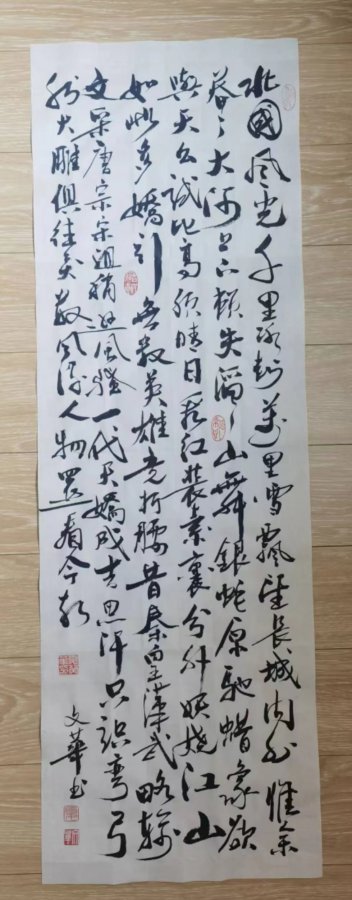 北國风光千里冰封萬里雪飄望長城内外惟余
莽々大河上下頓失滔々山舞銀蛇原馳蜡象欲
與天公試比高須晴日看红裝素裹分外妖嬈江山
如此多嬌引無數英雄竞折腰昔秦皇漢武略輸
文采唐宗宋祖稍遜風騷一代天嬌成吉思汗只識彎弓
射大雕俱往矣數风流人物還看今朝
文華书